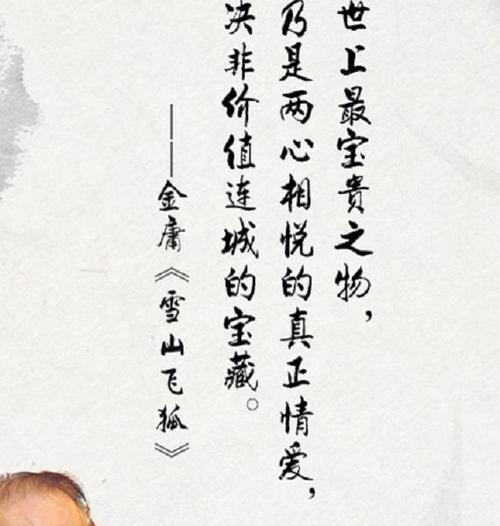 世上最宝贵之物，
乃是两心相悦的真正情爱，
决非价值连城的宝藏。
——金庸《雪山飞狐》